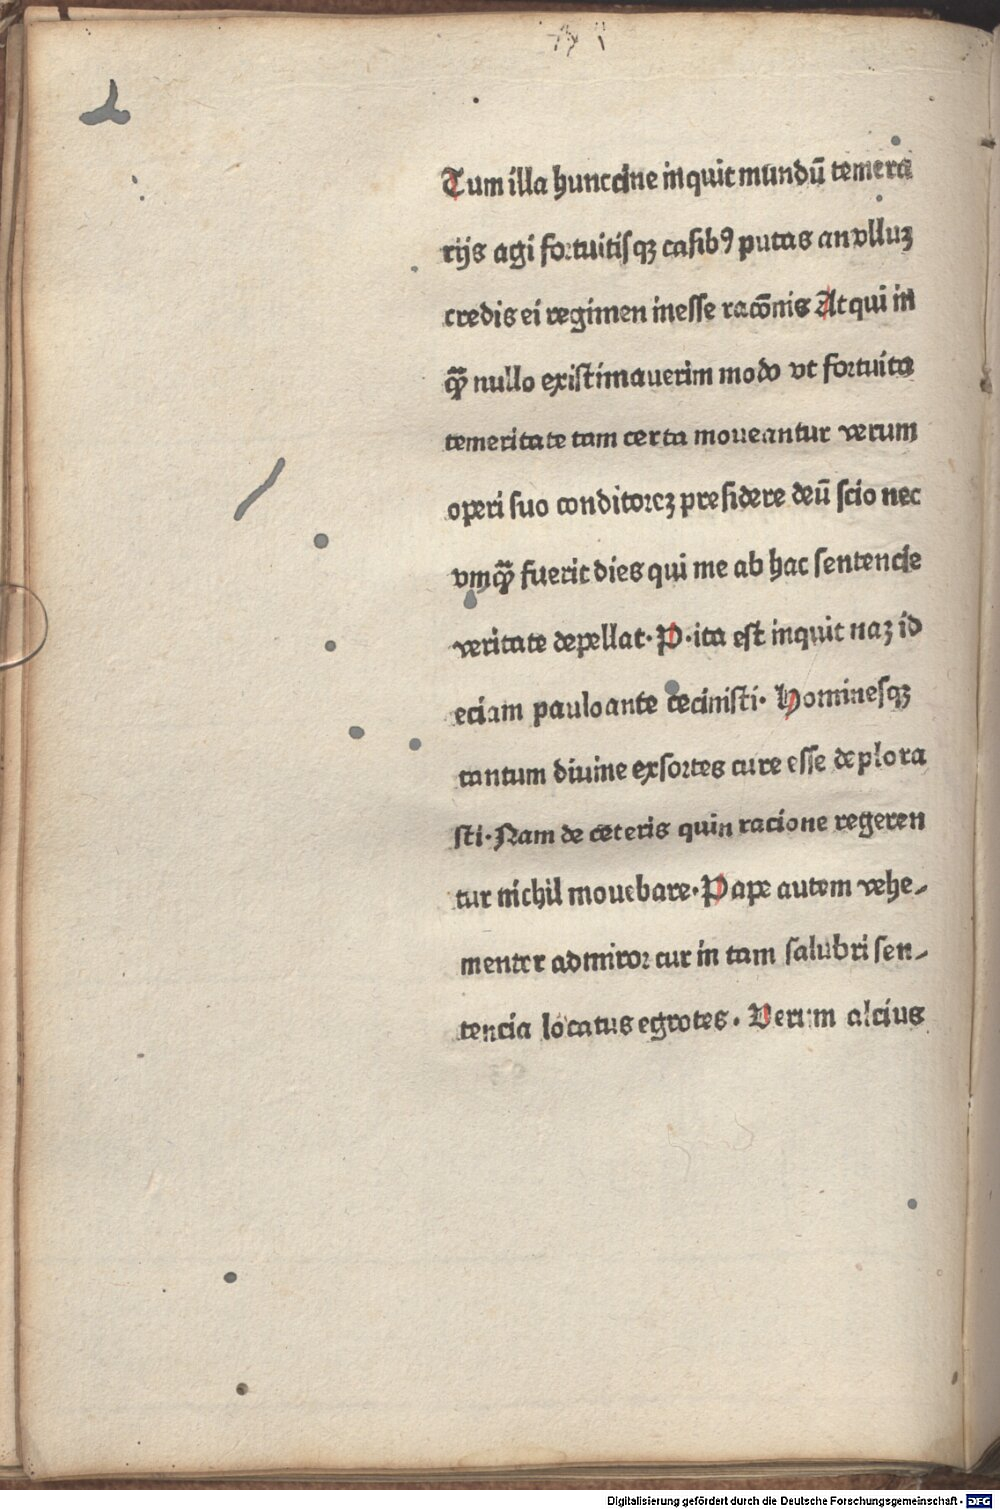 Tum illa hunccine inquit mundū temera
rijs agi fortuitisqꝫ casibꝰ putas an vlluꝫ
credis ei regimen inesse racōnis Atqui in
qͣꝫ nullo existimauerim modo vt fortuita
temeritate tam certa moueantur verum
operi suo conditoreꝫ presidere deū scio nec
vmqͣꝫ fuerit dies qui me ab hac sentencie
veritate depellat· P ·ita est inquit naꝫ id
eciam pauloante cecinisti· Hominesqꝫ
tantum diuine exsortes cure esse deplora
sti· Nam de ceteris quin racione regeren
tur nichil mouebare· Pape autem vehe⸗
menter admiror cur in tam salubri sen⸗
tencia locatus egrotes· Verum alcius
Digitalisierung gefördert durch die Deutsche Forschungsgemeinschaft - DFG